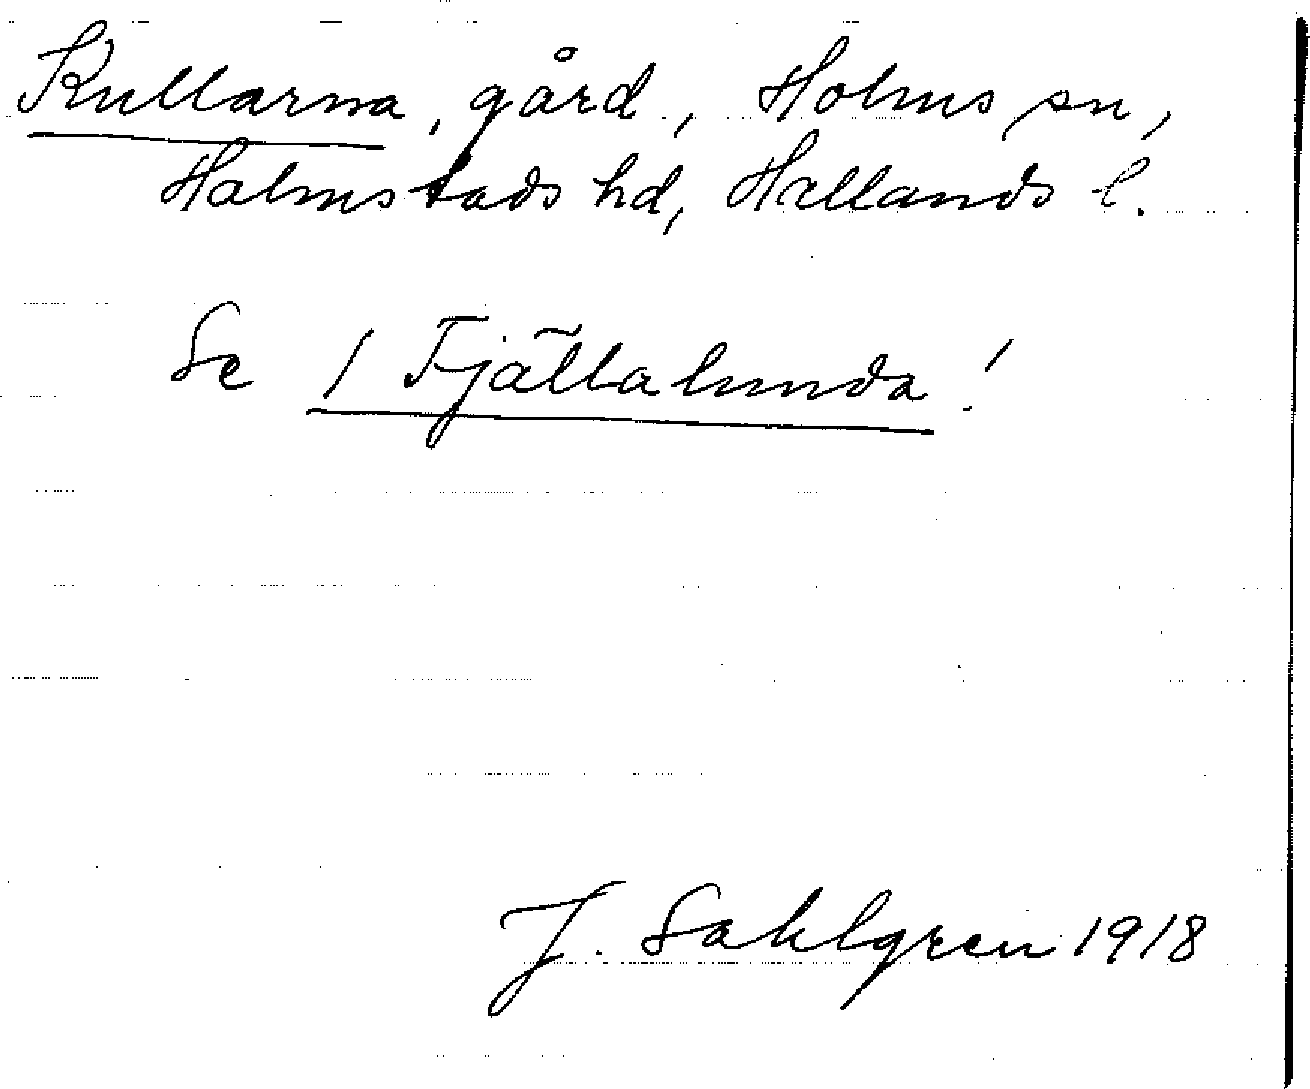 Kullarna, gård, Holms sn,
Halmstads hd, Hallands l.
Se 1 Fjällalunda!
J. Sahlgren 1918